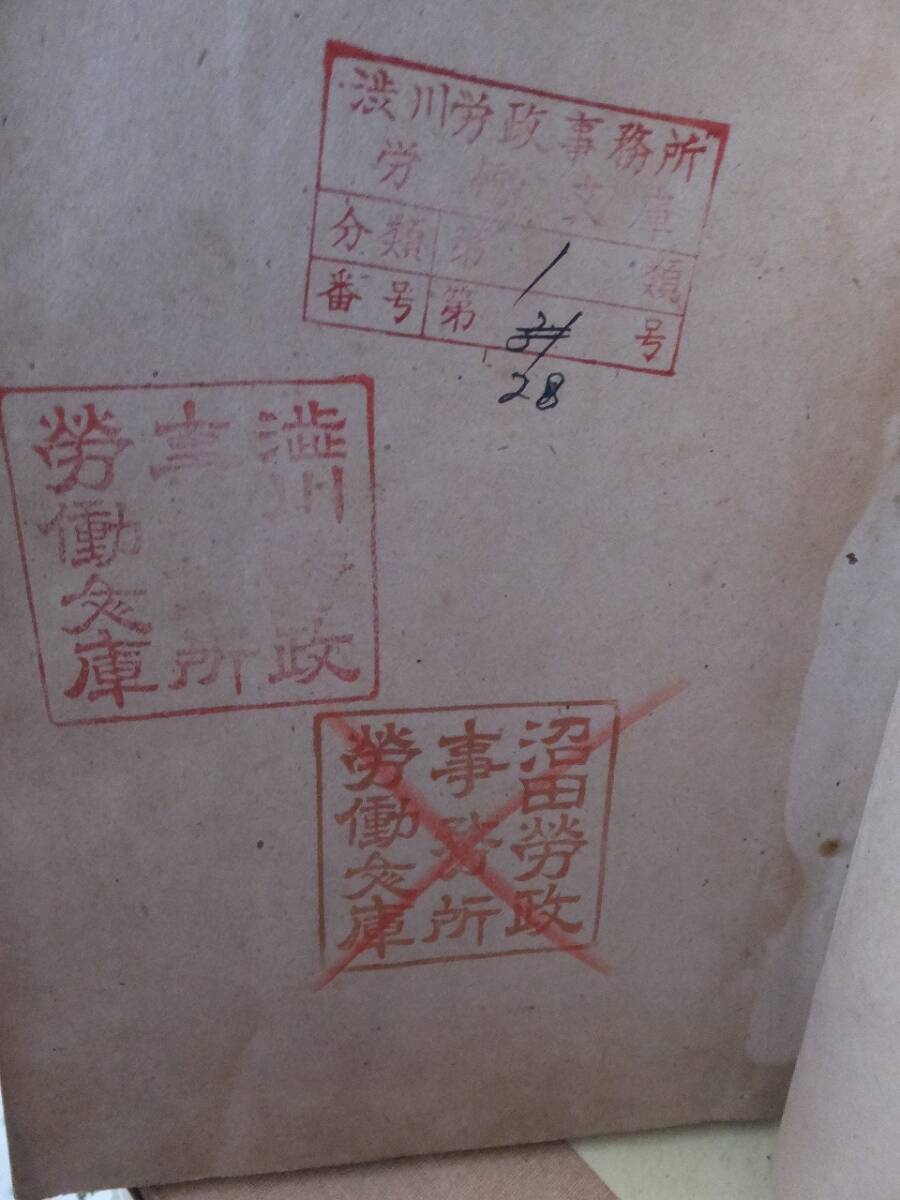 渋川労政事務所
労働文庫
分類 第 1 類
番号 第 21 号
28
渋川
政
事
所
勞働文庫
沼田勞政
事務所
勞働文庫